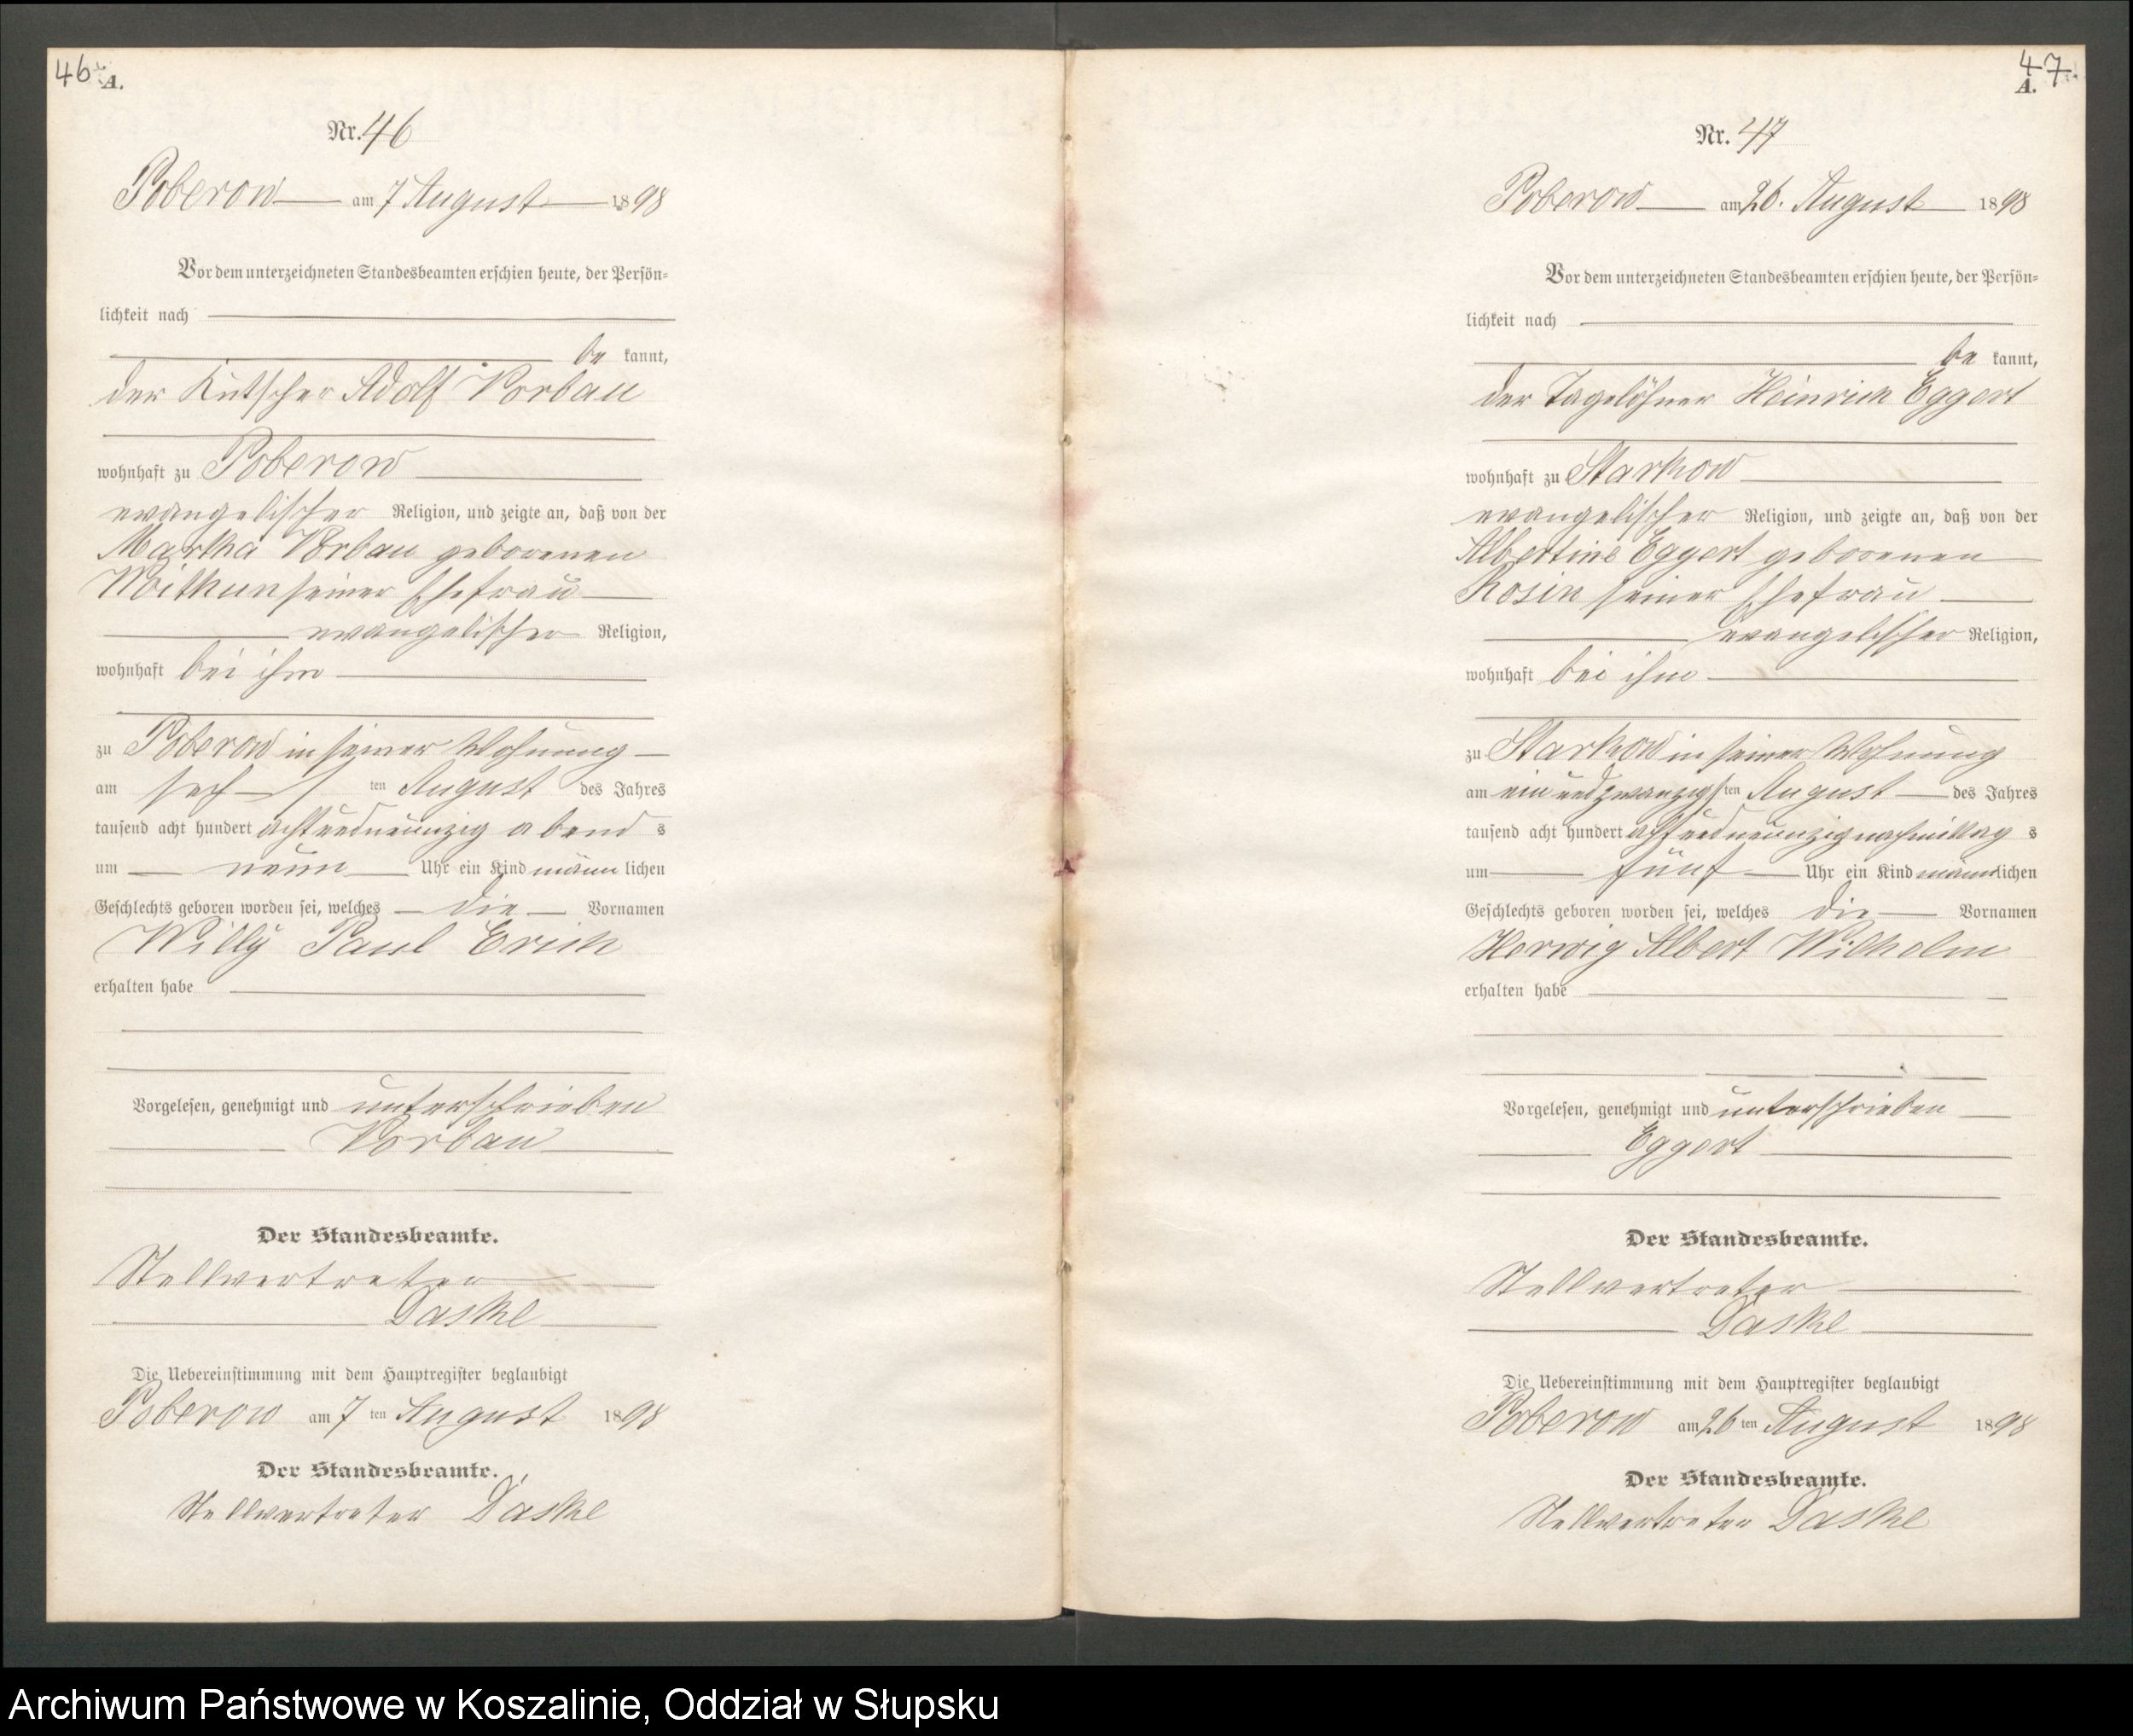 46
A.
Nr. 46
Poberow am 7 August 1898
Vor dem unterzeichneten Standesbeamten erschien heute, der Persön-
lichkeit nach
be kannt,
der Kutscher Adolf Vorbau
wohnhaft zu Poberow
evangelischer Religion, und zeigte an, daß von der
Martha Vorbau geborenen
Witkun seiner Ehefrau
evangelischer Religion,
wohnhaft bei ihm
zu Poberow in seiner Wohnung
am sechs ten August des Jahres
tausend acht hundert achtundneunzig abend s
um neun Uhr ein Kind männ lichen
Geschlechts geboren worden sei, welches die Vornamen
Willy Paul Erich
erhalten habe
Vorgelesen, genehmigt und unterschrieben
Vorbau
Der Standesbeamte.
Stellvertreter
Daske
Die Uebereinstimmung mit dem Hauptregister beglaubigt
Poberow am 7 ten August 1898
Der Standesbeamte.
Stellvertreter Daske
47
A.
Nr. 47
Poberow am 26. August 1898
Vor dem unterzeichneten Standesbeamten erschien heute, der Persön-
lichkeit nach
be kannt,
der Tagelöhner Heinrich Eggert
wohnhaft zu Starkow
evangelischer Religion, und zeigte an, daß von der
Albertine Eggert geborenen
Rosin seiner Ehefrau
evangelischer Religion,
wohnhaft bei ihm
zu Starkow in seiner Wohnung
am ein und zwanzigsten August des Jahres
tausend acht hundert achtundneunzig nachmittag s
um fünf Uhr ein Kind männlichen
Geschlechts geboren worden sei, welches die Vornamen
Herwig Albert Wilhelm
erhalten habe
Vorgelesen, genehmigt und unterschrieben
Eggert
Der Standesbeamte.
Stellvertreter
Daske
Die Uebereinstimmung mit dem Hauptregister beglaubigt
Poberow am 26 ten August 1898
Der Standesbeamte.
Stellvertreter Daske
Archiwum Państwowe w Koszalinie, Oddział w Słupsku